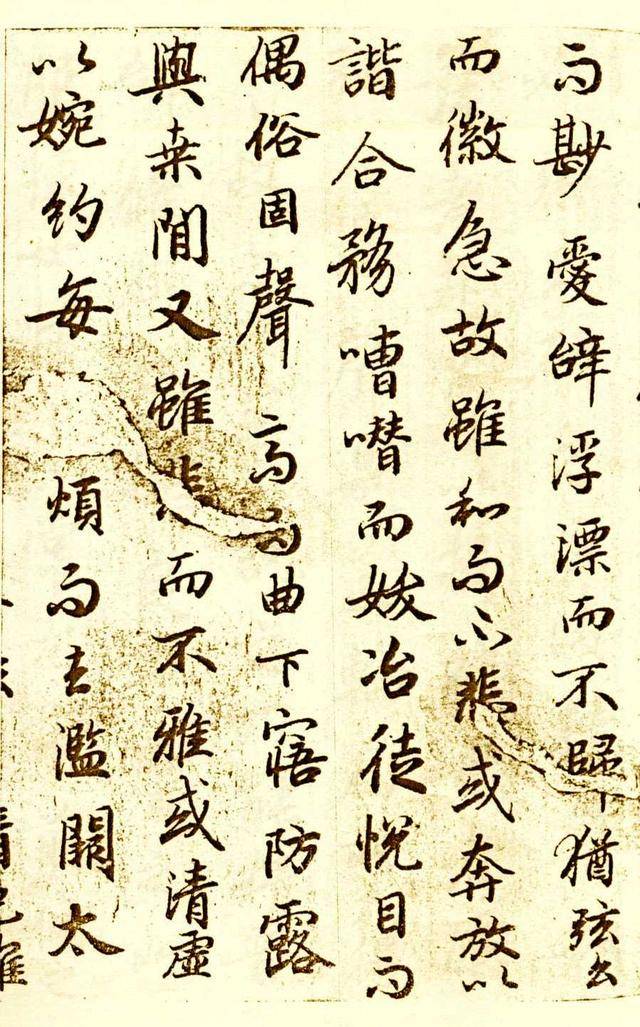 而尠愛辭浮漂而不歸猶弦幺
而徽急故雖和而不悲或奔放以
諧合務嘈囋而妖冶徒悅目而
偶俗固聲高而曲下寤防露
與桑間又雖悲而不雅或清虛
以婉約每煩而去濫闕太